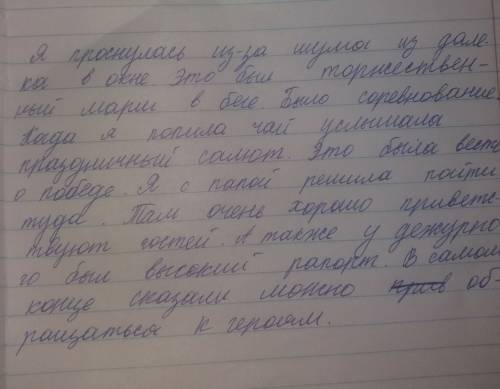 Я проснулась из-за шума из дале-
ка в окне. Это был торжествен-
ный марш в беге. Было соревнование.
Кода я попила чай услышала
праздничный салют. Это была весть
о победе. Я с папой решила пойти
туда. Там очень хорошо приветс-
твуют гостей. А также у дежурно-
го был высокий рапорт. В самом
конце сказали можно об-
ращаться к героям.